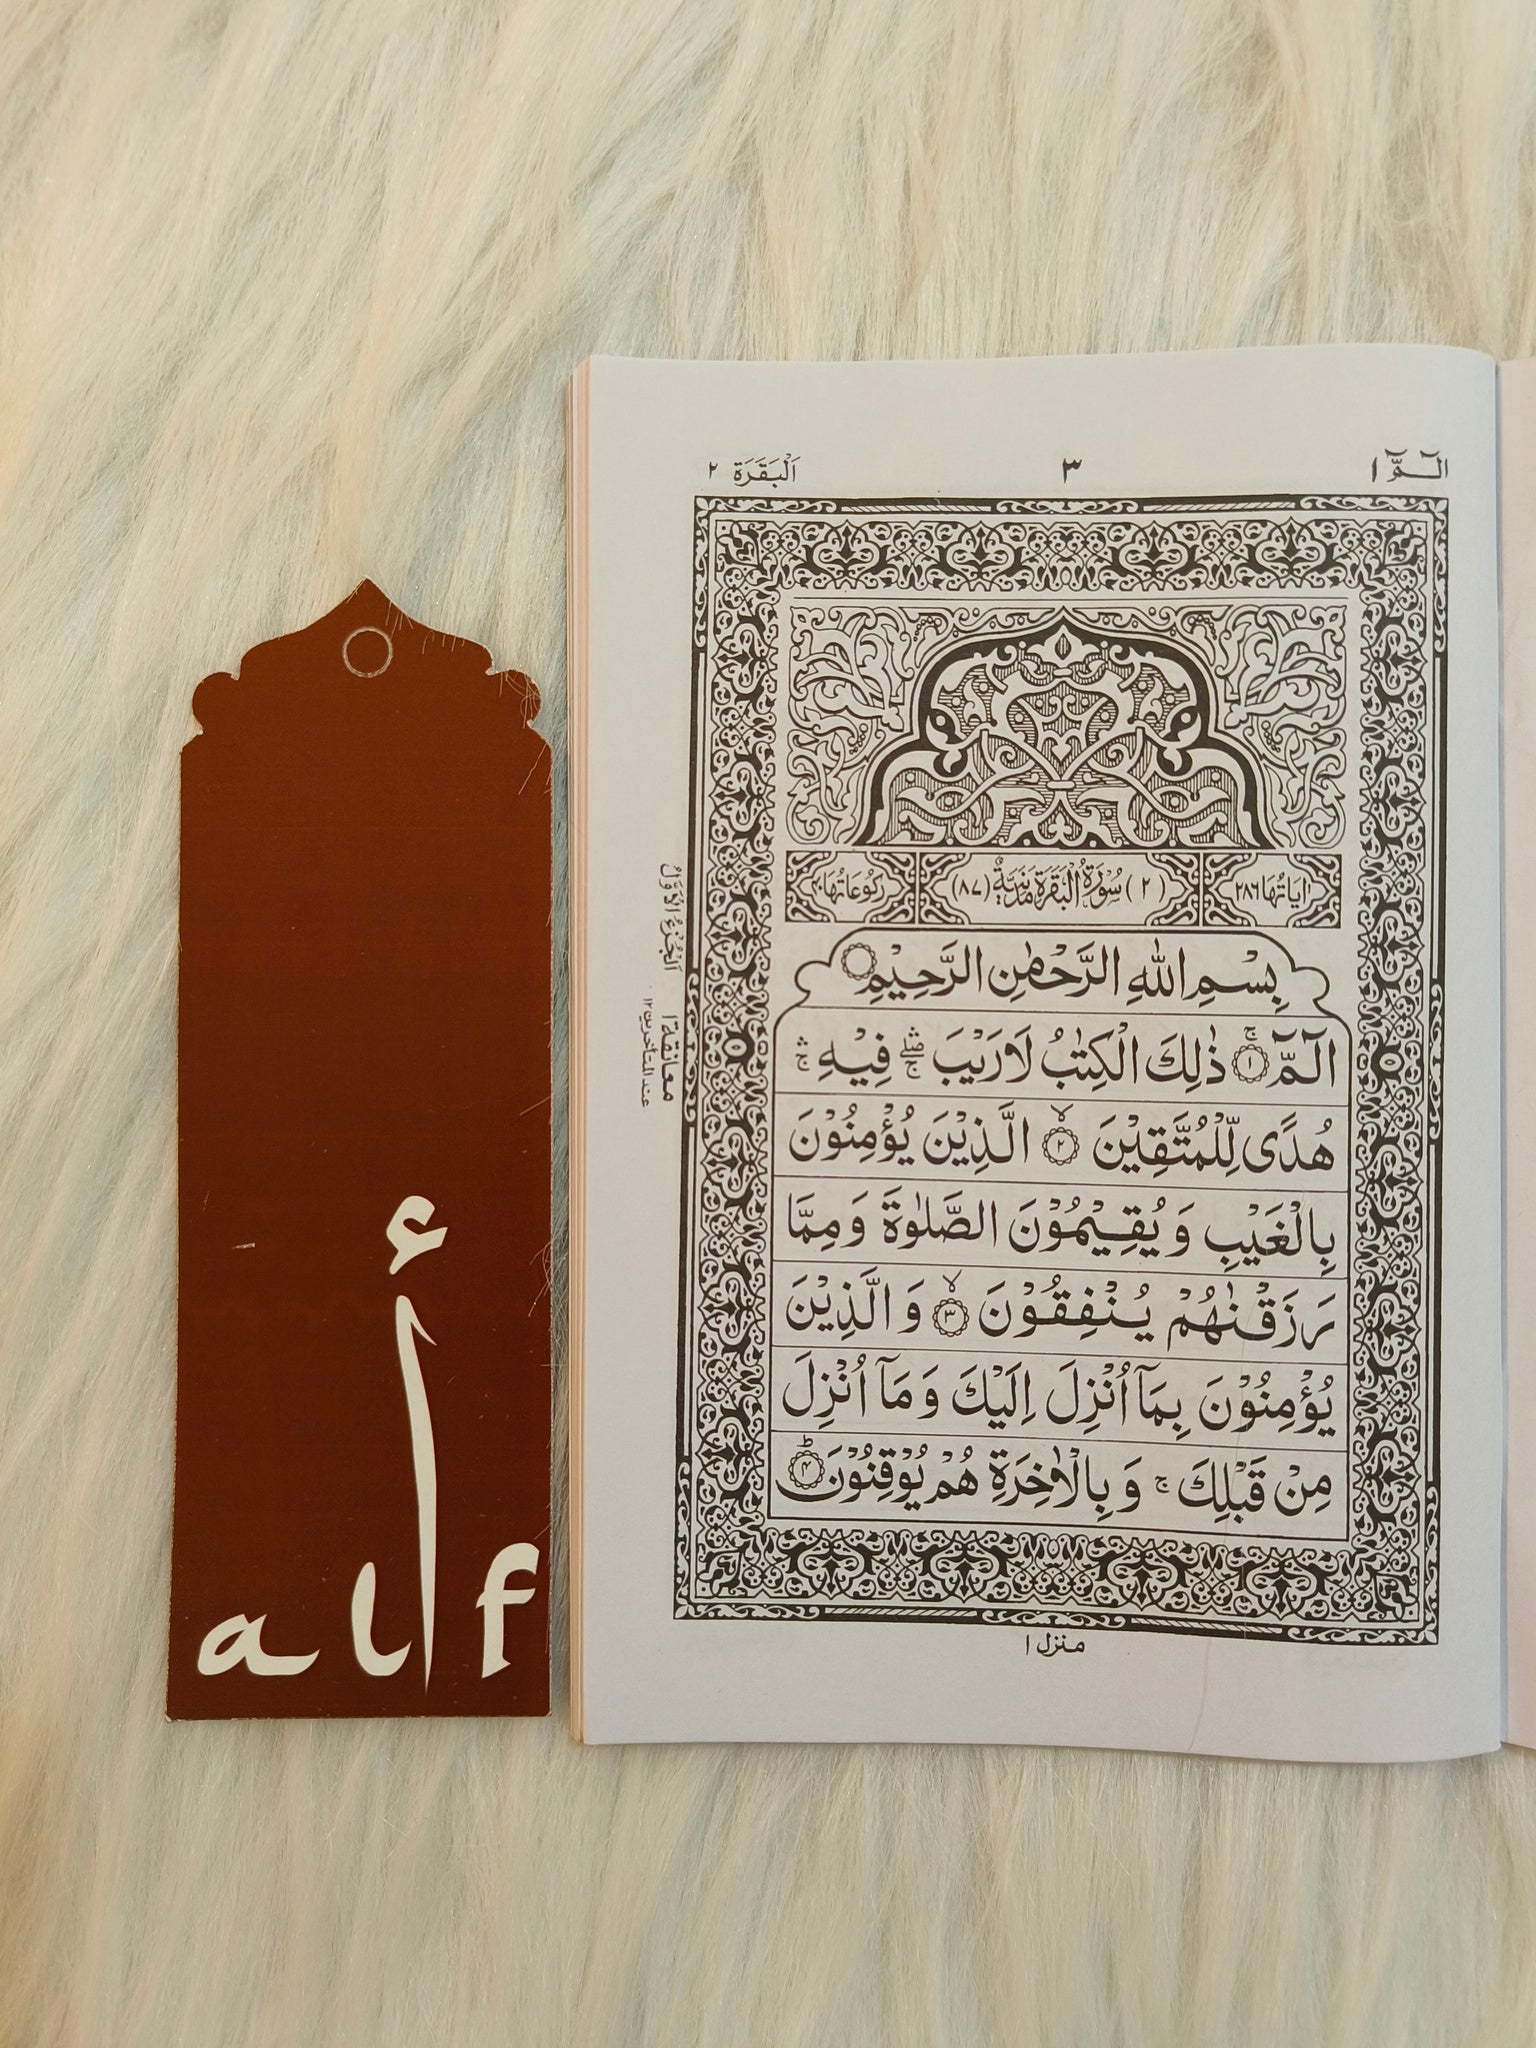 الٓـمّٓ ١
٣
اَلْبَقَرَة ٢
اٰيَاتُهَا ٢٨٦
(٢) سُوْرَةُ الْبَقَرَةِ مَدَنِيَّةٌ (٨٧)
رُكُوْعَاتُهَا ٤٠
بِسْمِ اللّٰهِ الرَّحْمٰنِ الرَّحِيْمِ
الٓمّٓ ۚ ﴿١﴾ ذٰلِكَ الْكِتٰبُ لَا رَيْبَ ۛۚ فِيْهِ ۛۚ
هُدًى لِّلْمُتَّقِيْنَ ۙ ﴿٢﴾ الَّذِيْنَ يُؤْمِنُوْنَ
بِالْغَيْبِ وَ يُقِيْمُوْنَ الصَّلٰوةَ وَ مِمَّا
رَزَقْنٰهُمْ يُنْفِقُوْنَ ۙ ﴿٣﴾ وَ الَّذِيْنَ
يُؤْمِنُوْنَ بِمَآ اُنْزِلَ اِلَيْكَ وَ مَآ اُنْزِلَ
مِنْ قَبْلِكَ ۚ وَ بِالْاٰخِرَةِ هُمْ يُوْقِنُوْنَ ؕ ﴿٤﴾
اَلْجُزْءُ الْاَوَّلُ
معانقة ١
عند المتأخرين ١٢
منزل ١
أ
alf